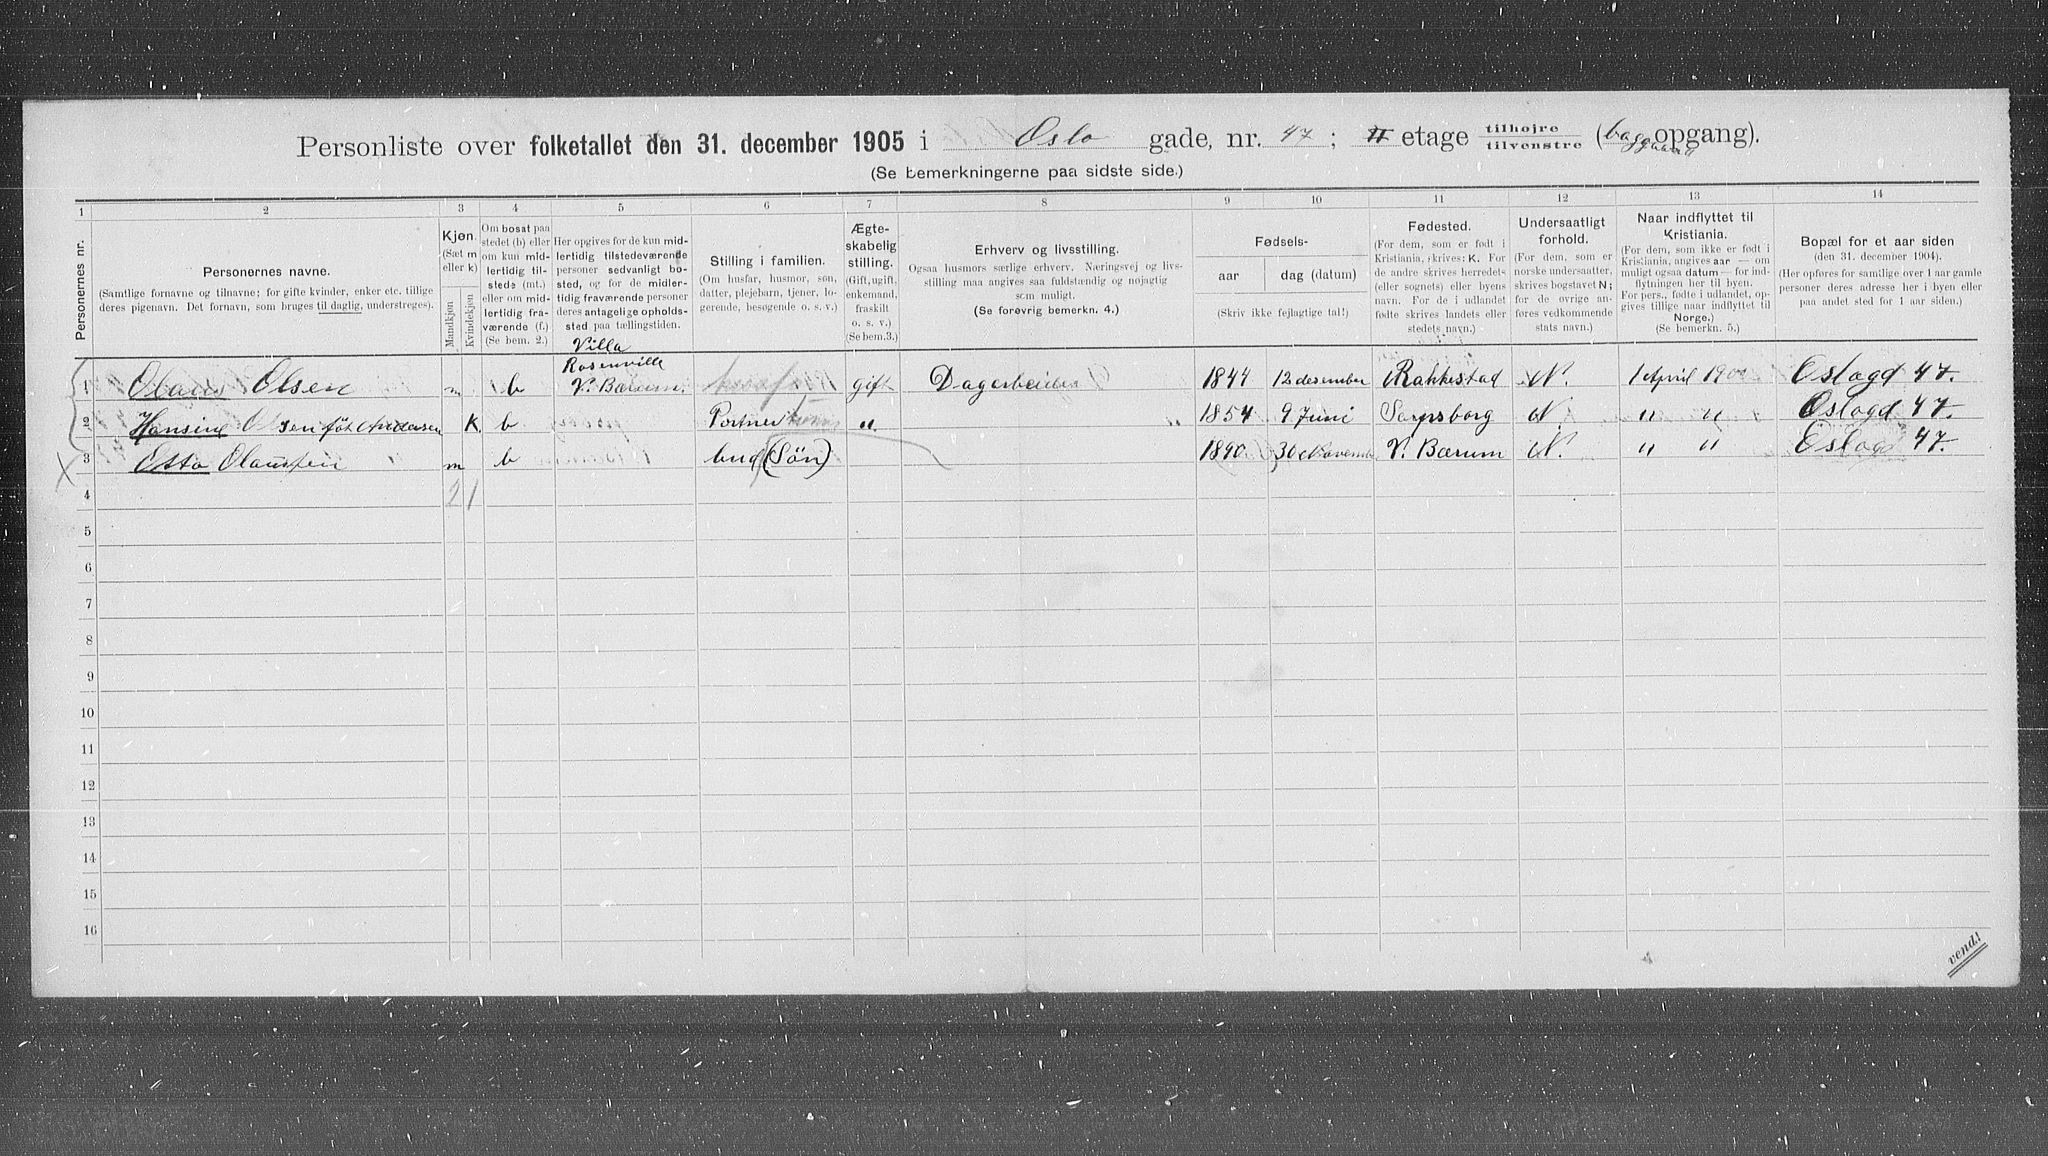 Personliste over folketallet den 31. december 1905 i Oslo gade, nr. 47; II etage tilhøjre / tilvenstre (baggaard opgang).
(Se bemerkningerne paa sidste side.)
1 2 3 4 5 6 7 8 9 10 11 12 13 14
Personernes nr.
Personernes navne.
(Samtlige fornavne og tilnavne; for gifte kvinder, enker etc. tillige
deres pigenavn. Det fornavn, som bruges til daglig, understreges).
Kjøn.
(Sæt m
eller k)
Mandkjøn
Kvindekjøn
Om bosat paa
stedet (b) eller
om kun mid-
lertidig til-
stede (mt.)
eller om mid-
lertidig fra-
værende (f.)
(Se bem. 2.)
Her opgives for de kun mid-
lertidig tilstedeværende
personer sedvanligt bo-
sted, og for de midler-
tidig fraværende personer
deres antagelige opholds-
sted paa tællingstiden.
Stilling i familien.
(Om husfar, husmor, søn,
datter, plejebarn, tjener, lo-
gerende, besøgende o. s. v.)
Ægte-
skabelig
stilling.
(Gift, ugift,
enkemand,
fraskilt
o. s. v.)
(Se bem.3.)
Erhverv og livsstilling.
Ogsaa husmors særlige erhverv. Næringsvej og livs-
stilling maa angives saa fuldstændig og nøjagtig
som muligt.
(Se forøvrig bemerkn. 4.)
Fødsels-
aar dag (datum)
(Skriv ikke fejlagtige tal!)
Fødested.
(For dem, som er født i
Kristiania, skrives: K. For
de andre skrives herredets
(eller sognets) eller byens
navn. For de i udlandet
fødte skrives landets eller
stedets navn.)
Undersaatligt
forhold.
(For dem, som er
norske undersaatter,
skrives bogstavet N;
for de øvrige an-
føres vedkommende
stats navn.)
Naar indflyttet til
Kristiania.
(For dem, som ikke er født i
Kristiania, angives aar — om
muligt ogsaa datum — for ind-
flytningen her til byen.
For pers., fødte i udlandet, op-
gives tillige naar indflyttet til
Norge.)
(Se bemerkn. 5.)
Bopæl for et aar siden
(den 31. december 1904).
(Her opføres for samtlige over 1 aar gamle
personer deres adresse her i byen eller
paa andet sted for 1 aar siden.)
Villa
Rosenville
1 Olaus Olsen m b V. Bærum. gift Dagarbeider 1844 12 desember Rakkestad N. 1 April 1900 Oslogd 47.
2 Hansine Olsen født Andersen K. b Portner kone " 1854 9 Juni Sarpsborg N. " " Oslogd 47.
3 Otto Olaussen m b bud (Søn) 1890 30 November V. Bærum N. " " Oslogd 47.
4 2 1
5
6
7
8
9
10
11
12
13
14
15
16
vend!